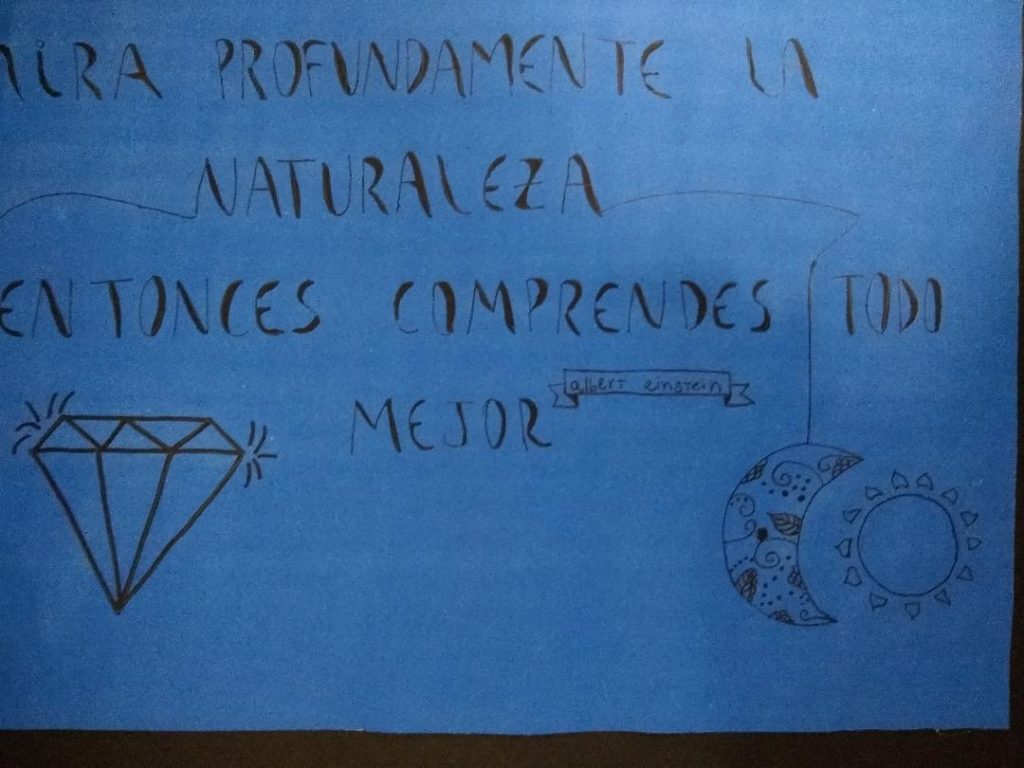 MIRA PROFUNDAMENTE LA
NATURALEZA
ENTONCES COMPRENDES TODO
MEJOR
albert einstein